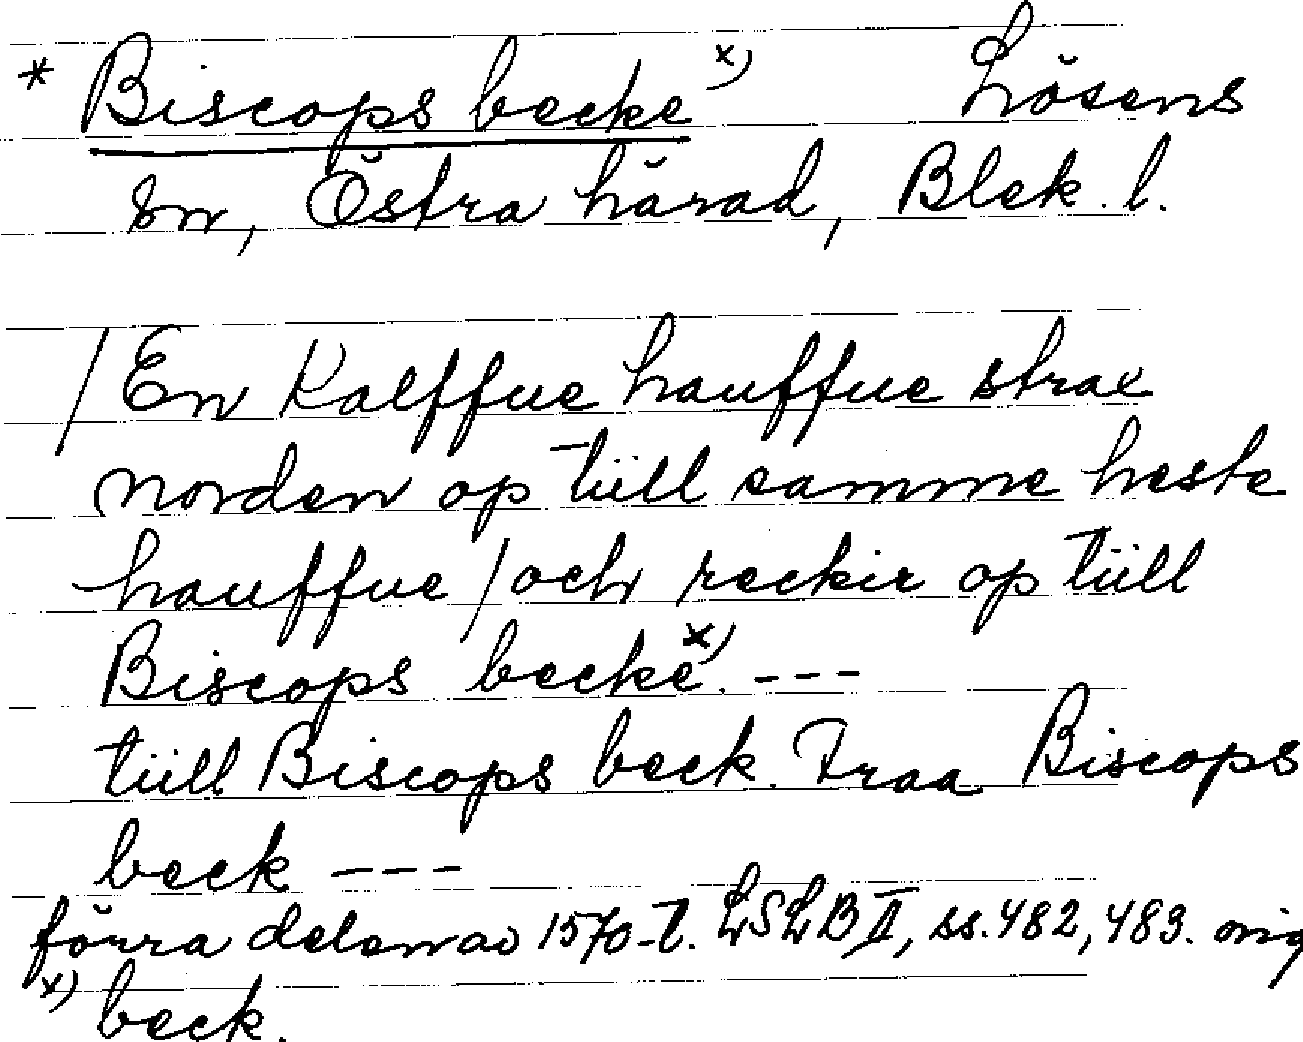 * Biscops becke x) Lösens
sn, Östra härad, Blek. l.
/En Kalffue hauffue strax
norden op tüll samme heste
hauffue/och reckir op tüll
Biscops becke x). ---
tüll Biscops beck. Fraa Biscops
beck ---
förra delen av 1570-t. LSLB II, ss. 482, 483. orig
x) beck.